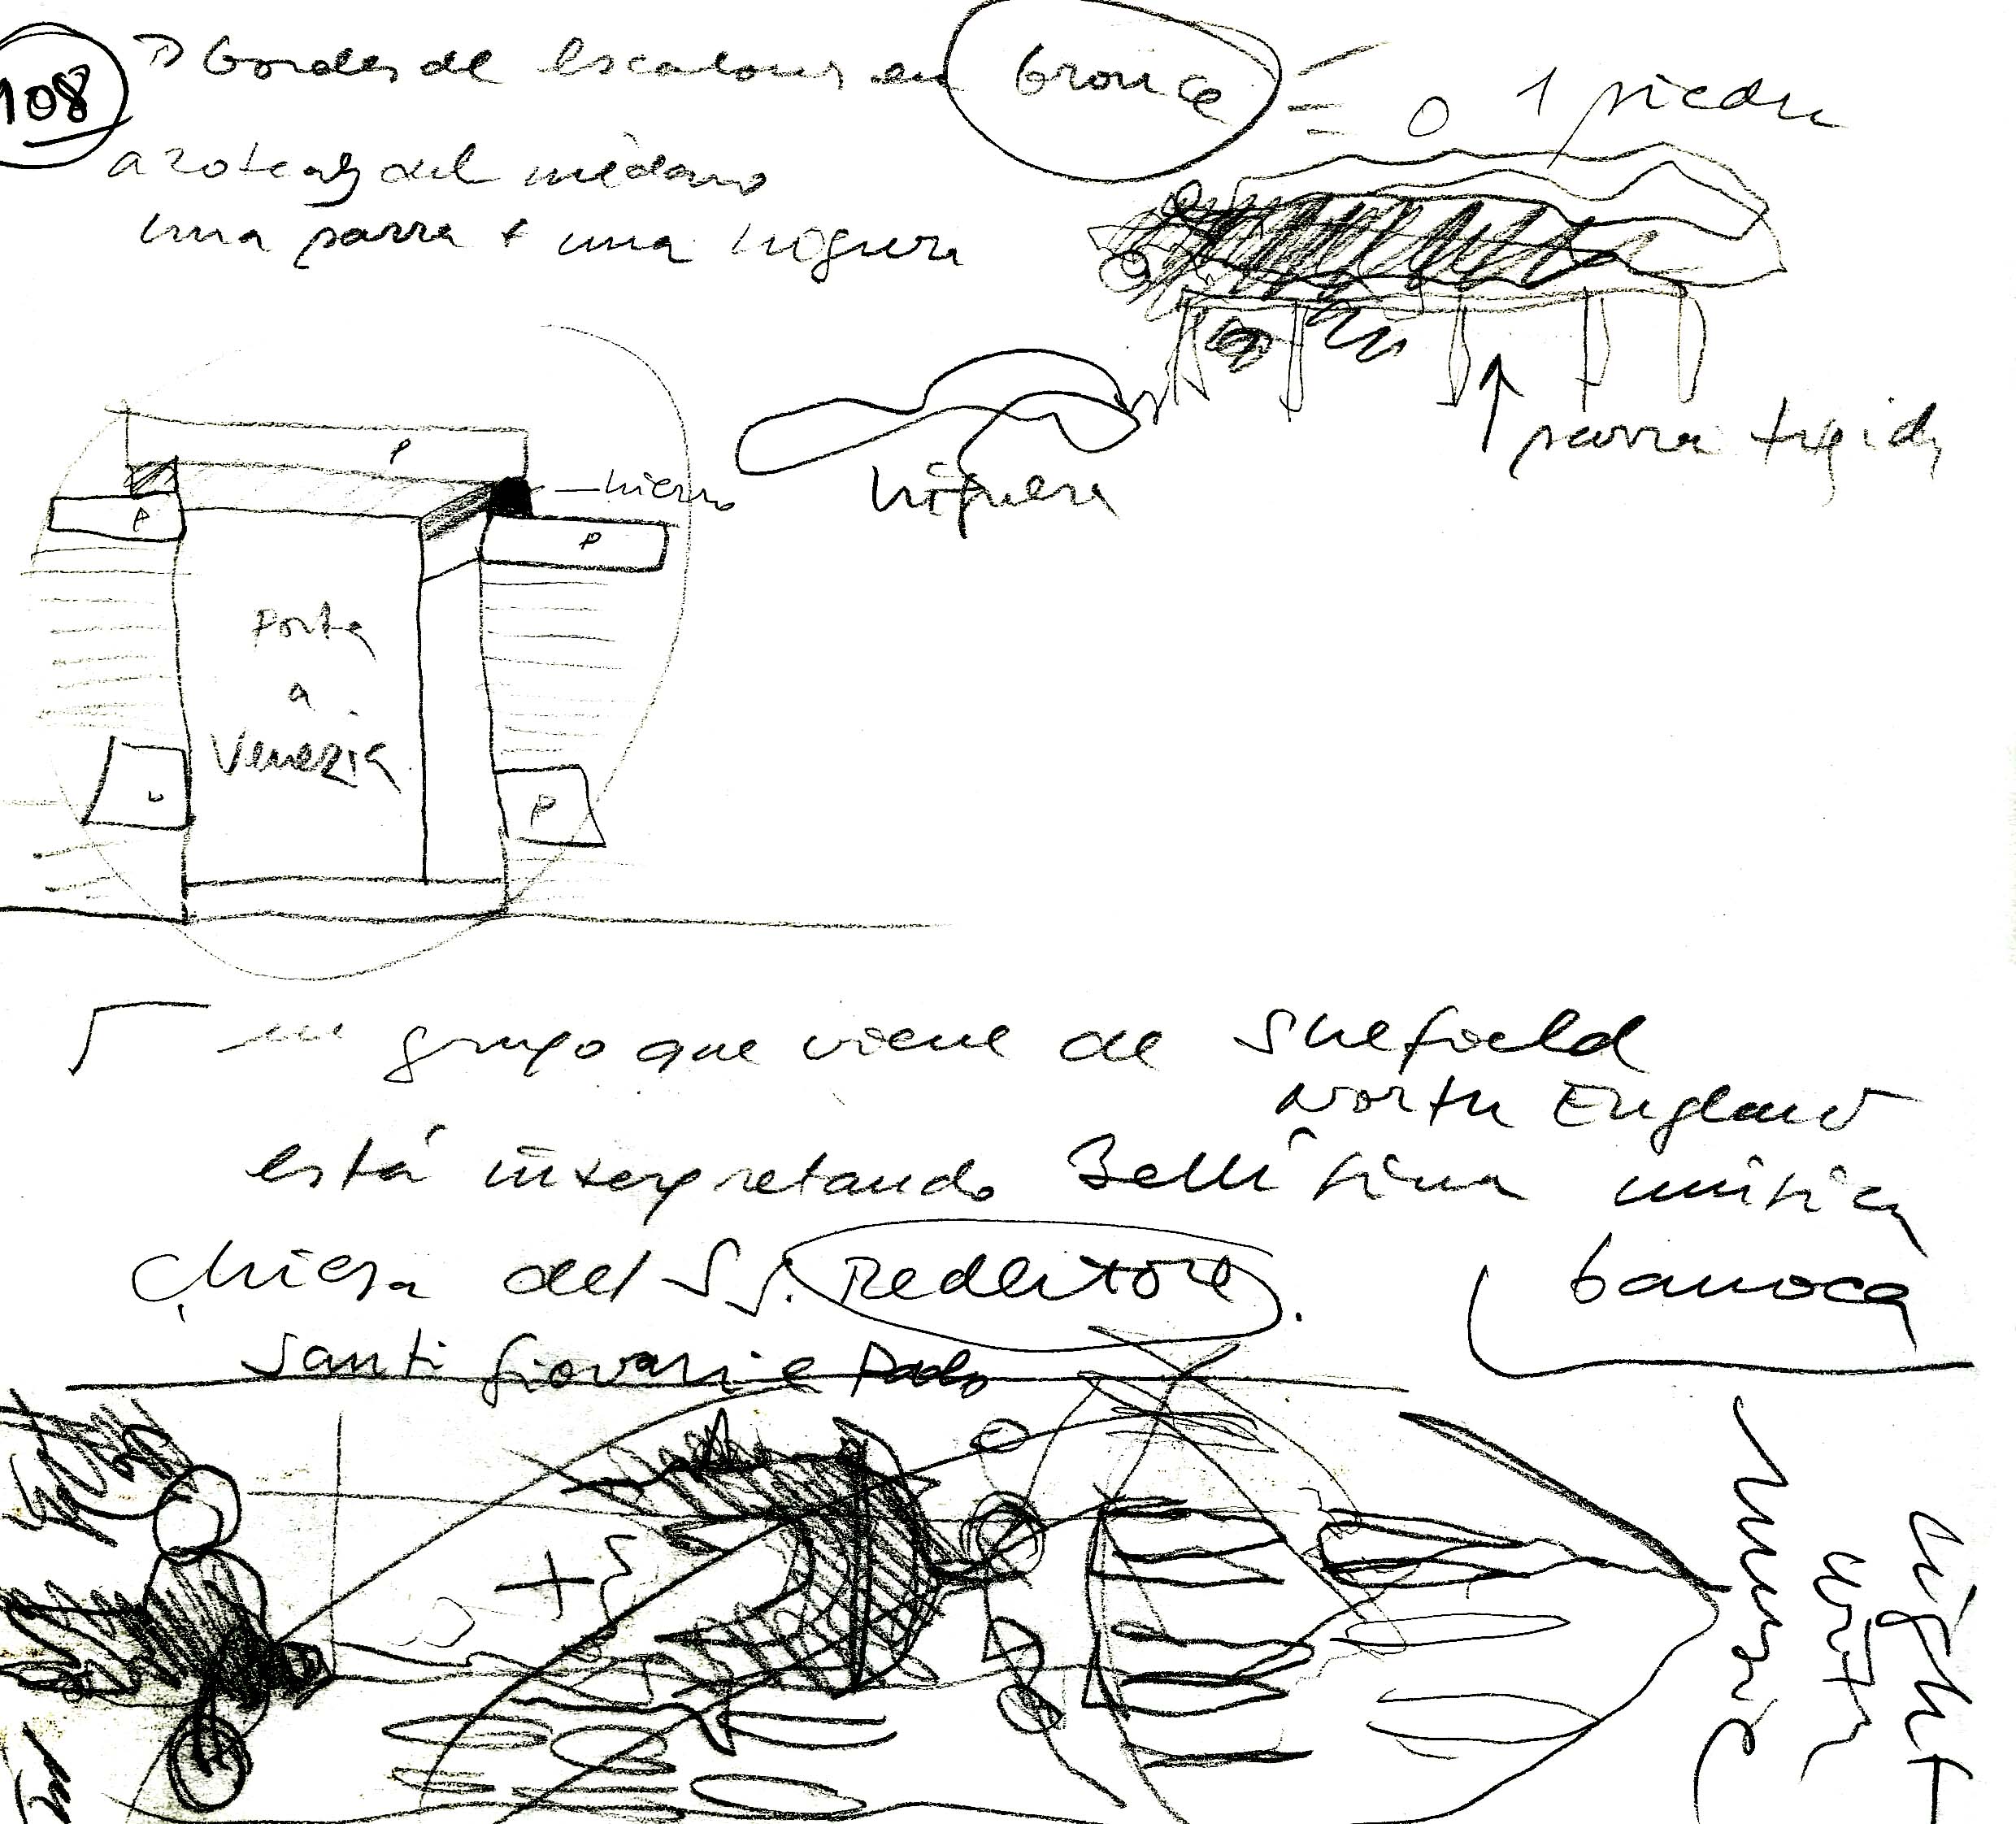 108
bordes de escalones en bronce = 0 1 piedra
azoteas del médano
una parra + una higuera
parra tupida
higuera
hierro
P
P
P
Porta
a
Venezia
P
un grupo que viene de Shefield
North England
está interpretando Bellísima música
barroca
Chiesa del SS. Redentore.
Santi Giovanni e Paolo
night
water
music